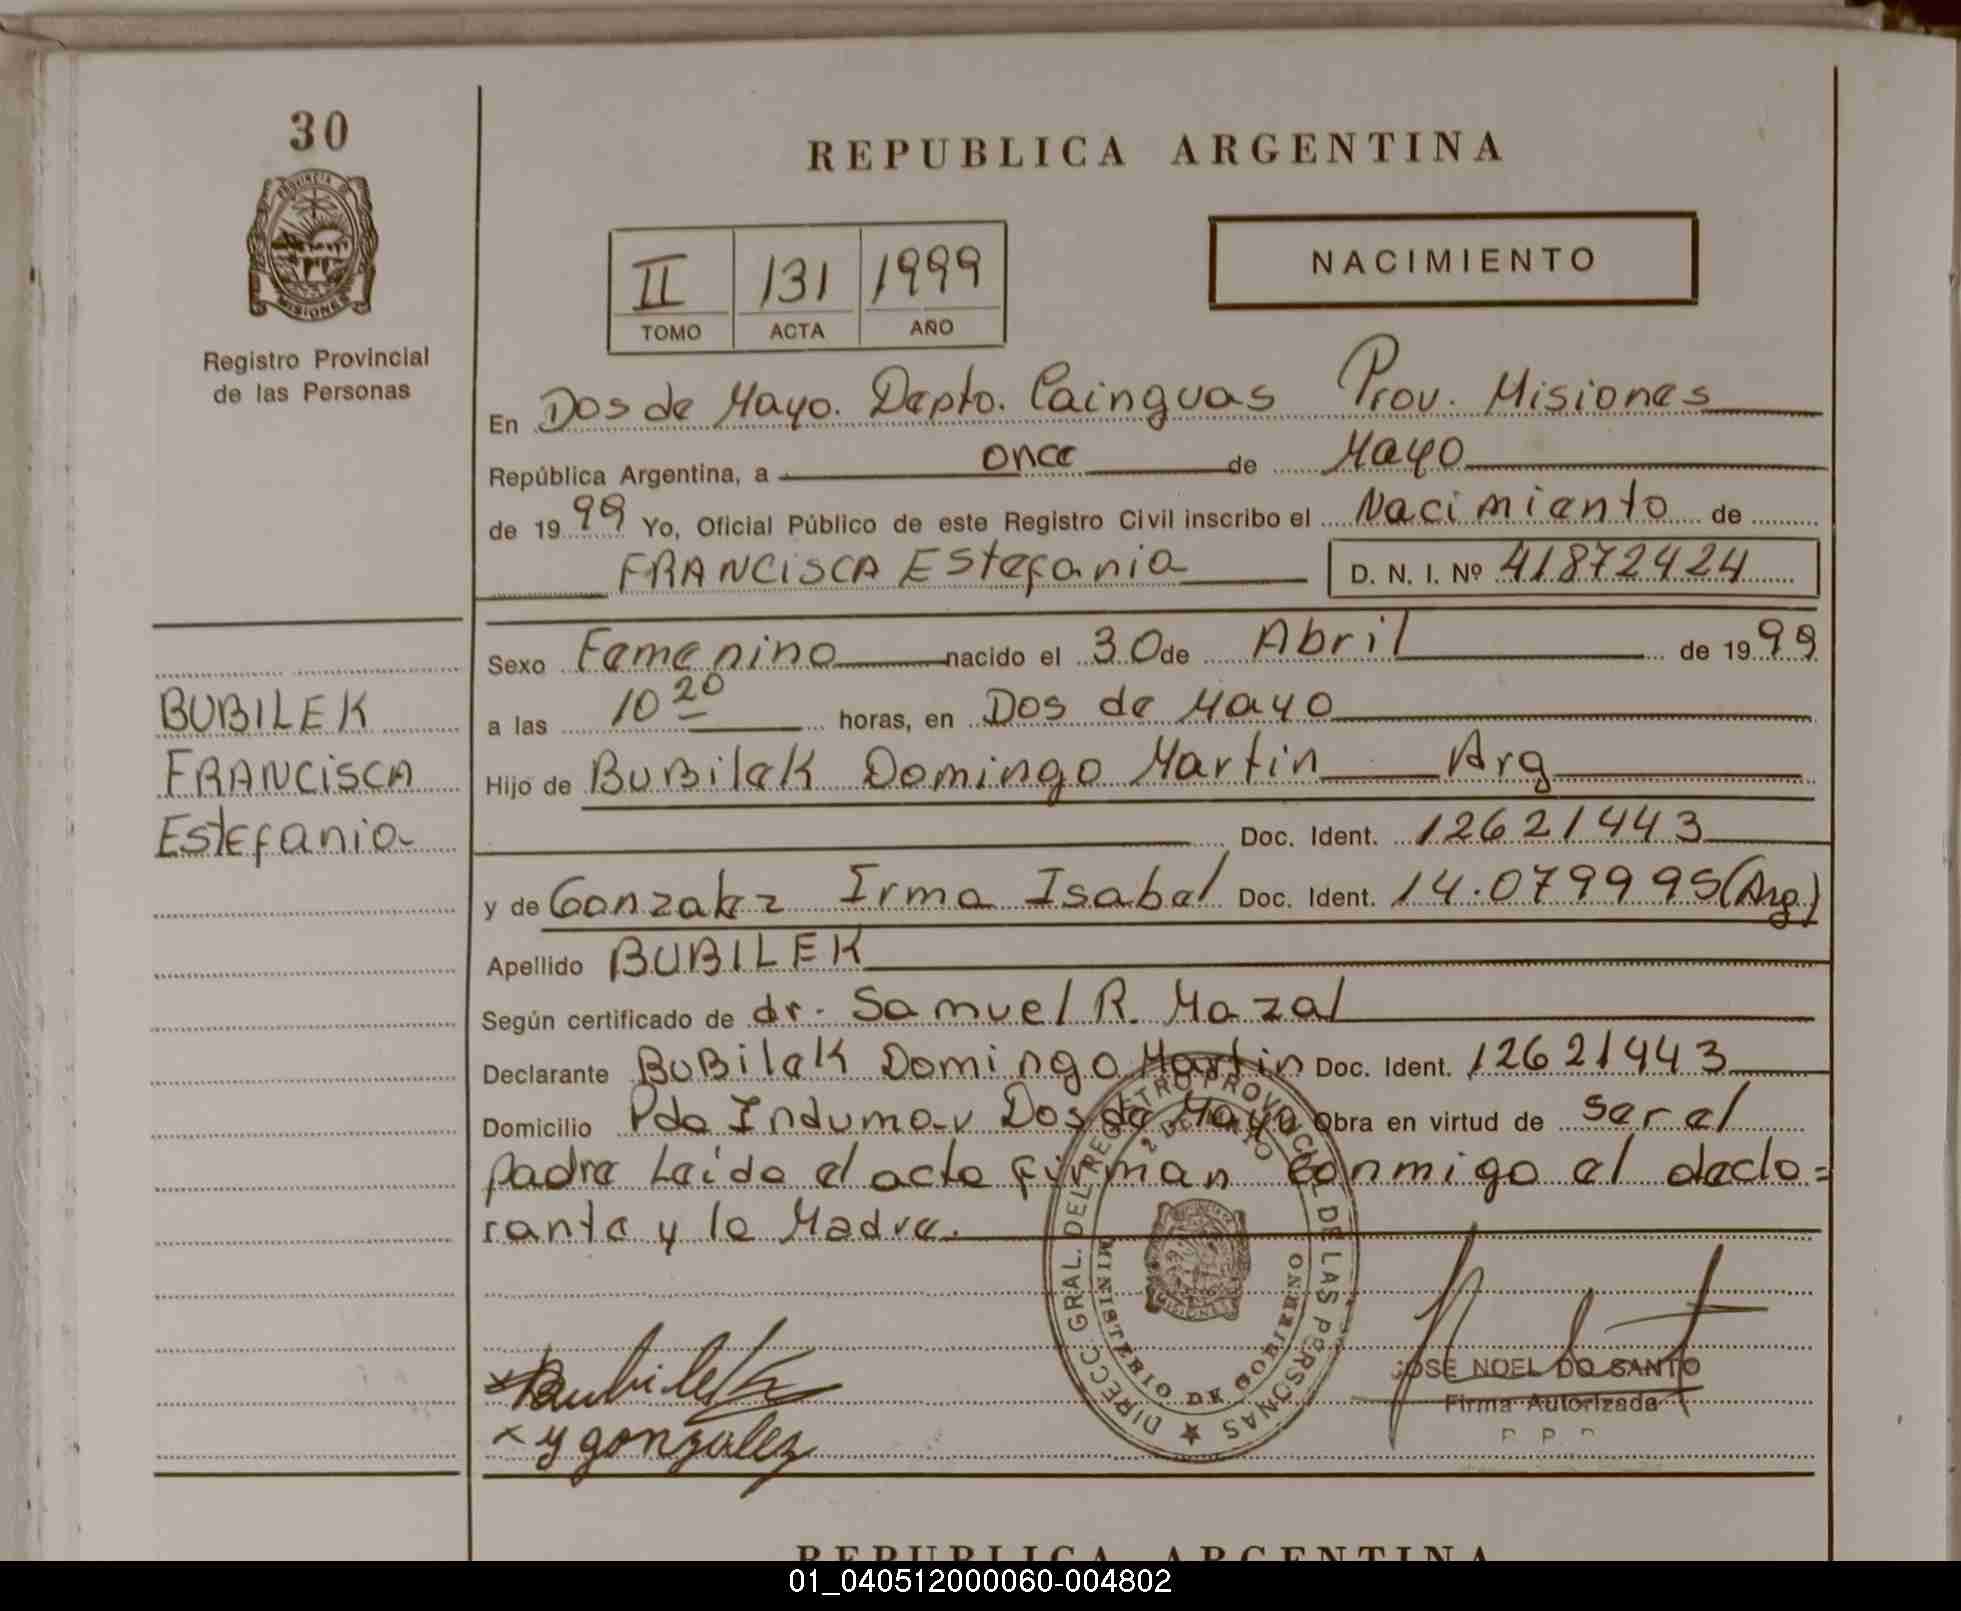 30
REPUBLICA ARGENTINA
PROVINCIA DE
MISIONES
Registro Provincial
de las Personas
II 131 1999
TOMO ACTA AÑO
NACIMIENTO
En Dos de Mayo. Depto. Cainguas Prov. Misiones
República Argentina, a once de Mayo
de 1999 Yo, Oficial Público de este Registro Civil inscribo el Nacimiento de
FRANCISCA Estefania D. N. I. Nº 41872424
Sexo Femenino nacido el 30 de Abril de 1999
a las 10 20 horas, en Dos de Mayo
BUBILEK
FRANCISCA
Estefania
Hijo de BuBilek Domingo Martin Arg
Doc. Ident. 12621443
y de Gonzalez Irma Isabel Doc. Ident. 14.079995 (Arg)
Apellido BUBILEK
Según certificado de dr. Samuel R. Mazal
Declarante BuBilek Domingo Martin Doc. Ident. 12621443
Domicilio Pdo Indumar Dos de Mayo Obra en virtud de ser el
padre Leido el acta firman conmigo el decla=
rante y la Madre.
DIRECC. GRAL. DEL REGISTRO PROVINCIAL DE LAS PERSONAS
2 DE MAYO
MINISTERIO DE GOBIERNO
MISIONES
x Bubilek
x y gonzalez
JOSE NOEL DO SANTO
Firma Autorizada
REPUBLICA ARGENTINA
01_040512000060-004802